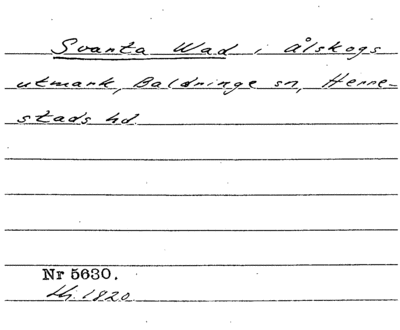 Svanta Wad i Ålskogs
utmark, Baldringe sn, Herre-
stads hd.
Nr 5630.
1820